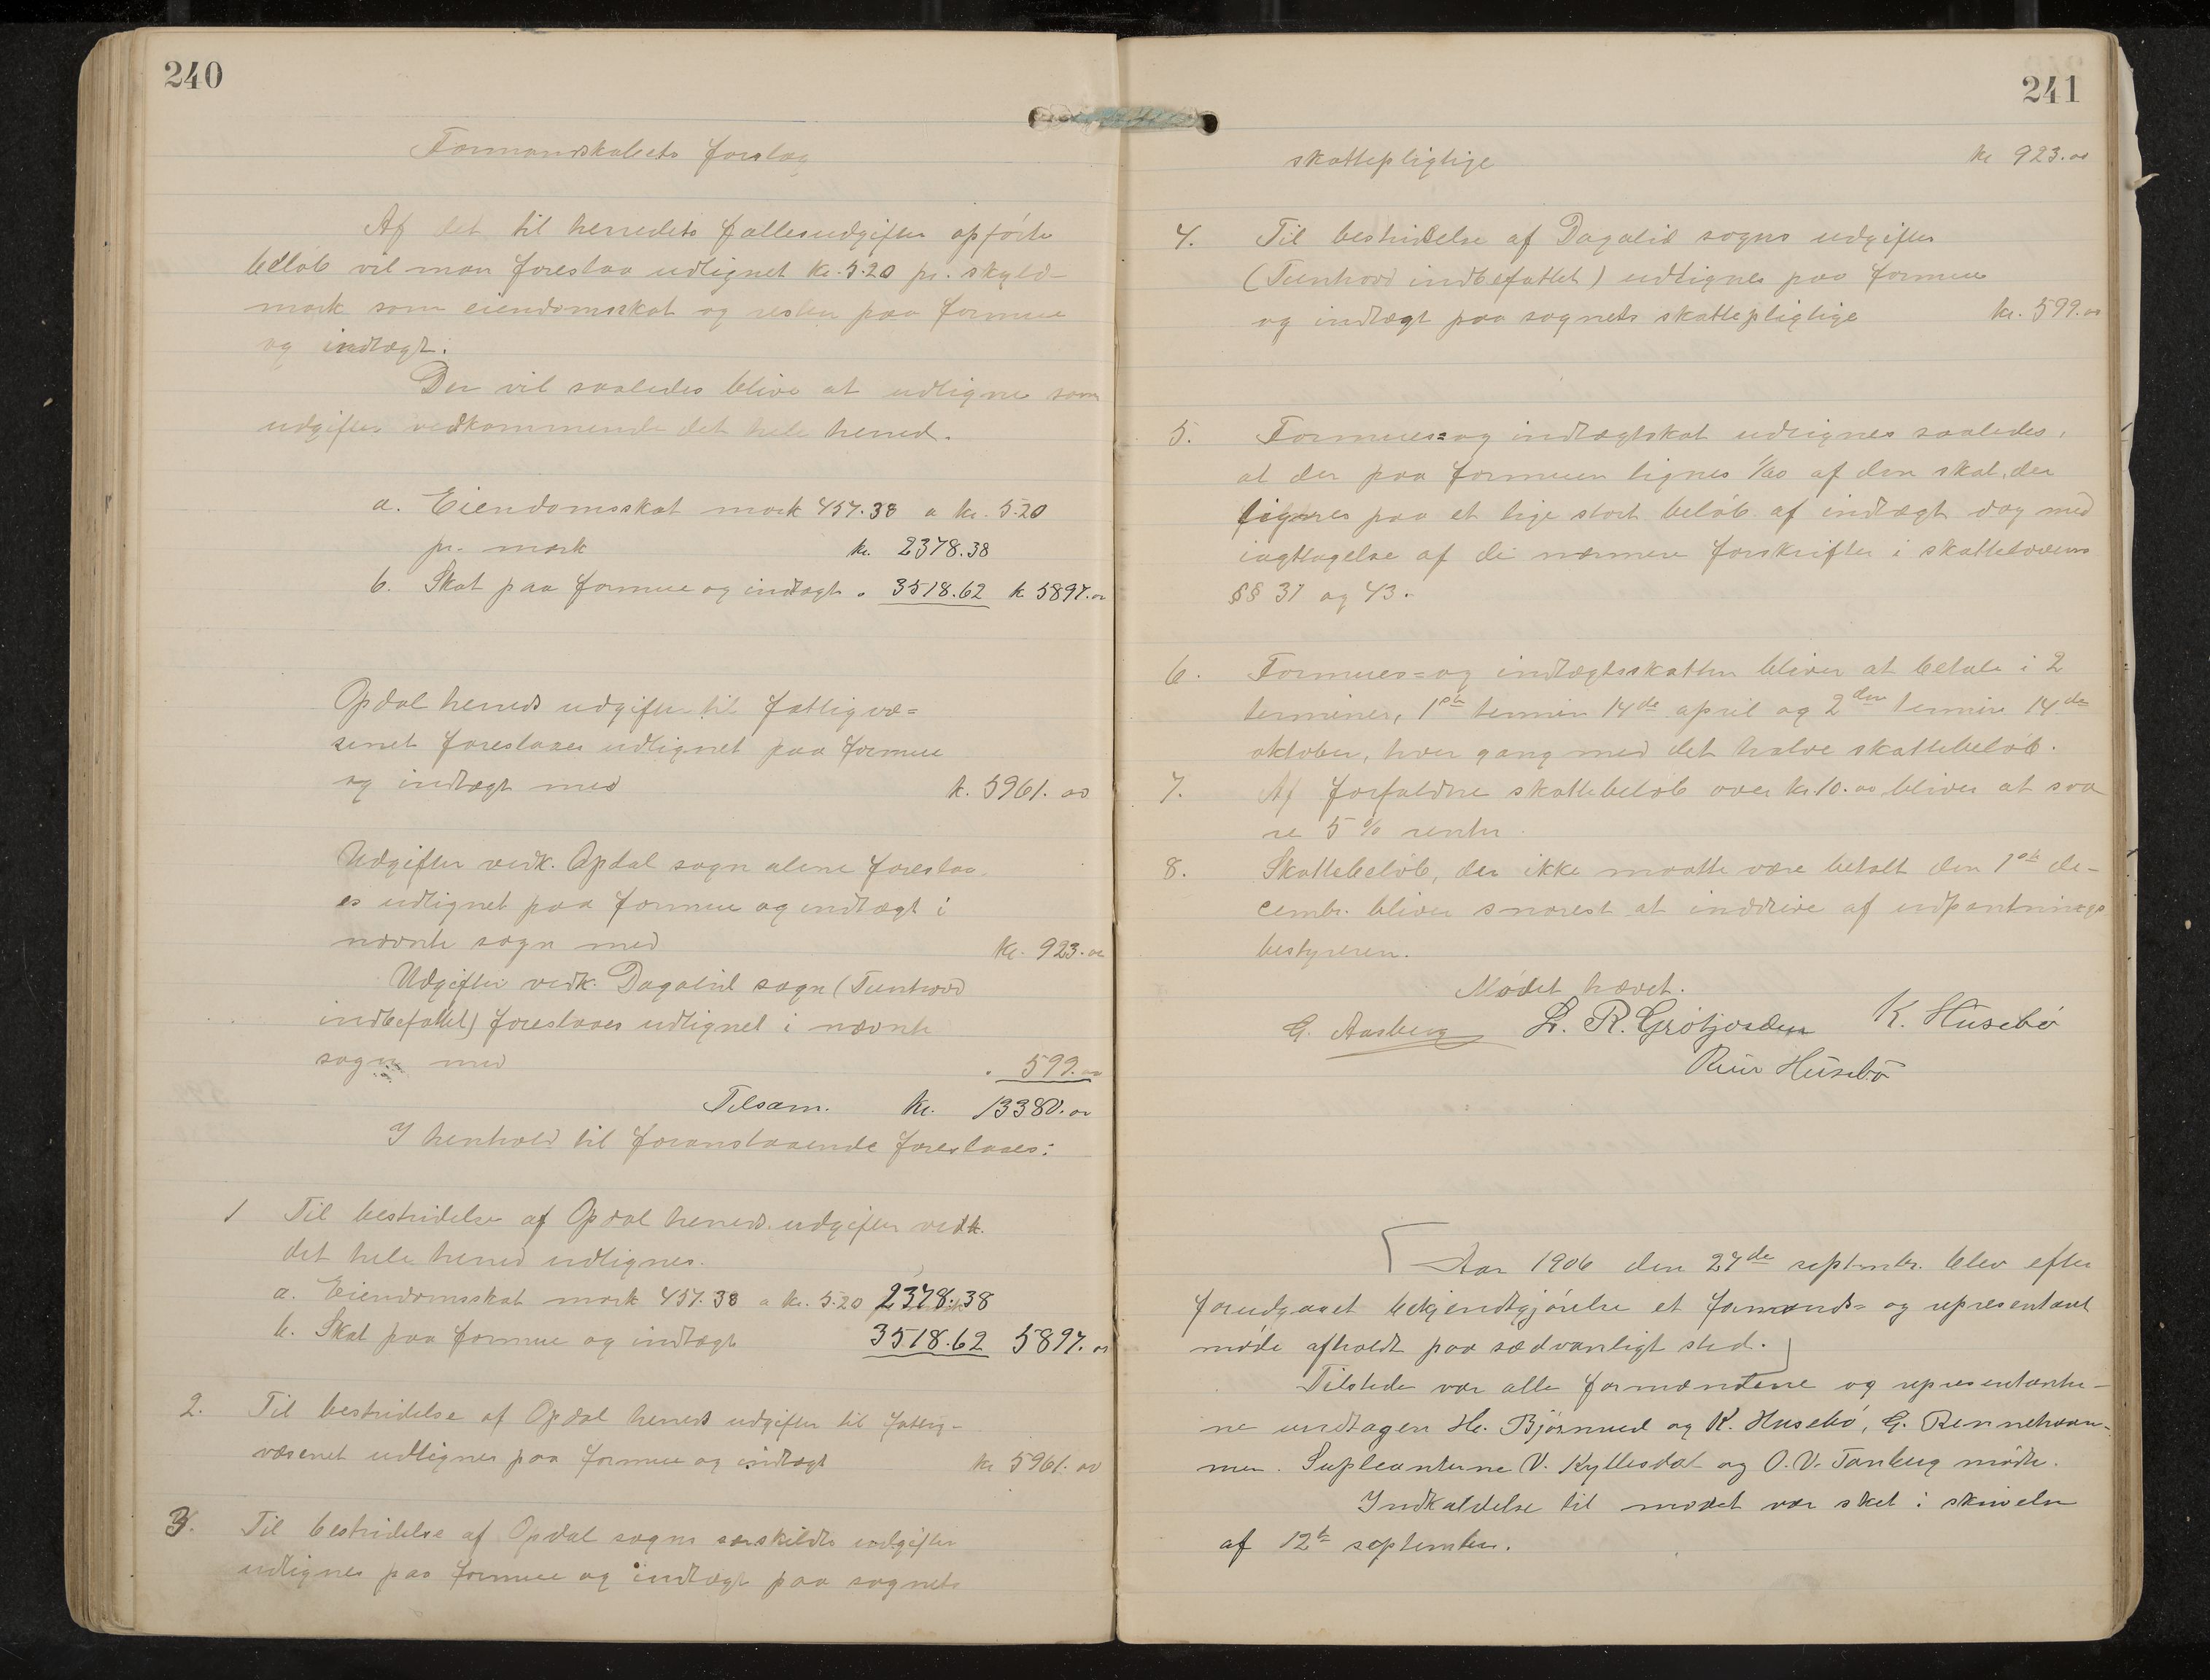 240
Formandskabets forslag
Af det til herredets fællesudgifter opførte
beløb vil man foreslaa udlignet kr. 5.20 pr. skyld-
mark som eiendomsskat og resten paa formue
og indtægt.
Der vil saaledes blive at udligne som
udgifter vedkommende det hele herred.
a. Eiendomsskat mark 457.38 a kr. 5.20
pr. mark kr. 2378.38
b. Skat paa formue og indtægt " 3518.62 k 5897.00
Opdal herreds udgifter til fattigvæ=
senet foreslaaes udlignet paa formue
og indtægt med k. 5961.00
Udgifter vedk. Opdal sogn alene foreslaa-
es udlignet paa formue og indtægt i
nævnte sogn med kr. 923.00
Udgifter vedk. Dagalid sogn (Tunhovd
indbefattet) foreslaaes udlignet i nævnte
sogn med " 599.00
Tilsam. kr. 13380.00
I henhold til foranstaaende foreslaaes:
1 Til bestridelse af Opdal herreds udgifter vedk.
det hele herred udlignes.
a. Eiendomsskat mark 457.38 a kr. 5.20 2378.38
b. Skat paa formue og indtægt 3518.62 5897.00
2. Til bestridelse af Opdal herreds udgifter til fattig-
væsenet udlignes paa formue og indtægt kr 5961.00
3. Til bestridelse af Opdal sogns særskildte udgifter
udlignes paa formue og indtægt paa sognets
241
skattepligtige kr 923.00
4. Til bestridelse af Dagalid sogns udgifter
(Tunhovd indbefattet) udlignes paa formue
og indtægt paa sognets skattepligtige kr. 599.00
5. Formues= og indtægtskat udlignes saaledes,
at der paa formuen lignes 1/60 af den skat, der
lignes paa et lige stort beløb af indtægt dog med
iagttagelse af de nærmere forskrifter i skattelovens
§§ 37 og 43.
6. Formues= og indtægtsskatten bliver at betale i 2
terminer, 1ste termin 14de april og 2den termin 14de
oktober, hver gang med det halve skattebeløb.
7. Af forfaldne skattebeløb over kr. 10.00 bliver at sva-
re 5 % rente.
8. Skattebeløb, der ikke maatte være betalt den 1ste de-
cembr. bliver snarest at inddrive af udpantnings
bestyreren.
Mødet hævet.
G. Aasberg L. R. Grøtjorden K. Husebø
Husebø
Aar 1906 den 27de septembr. blev efter
forudgaaet bekjendtgjørelse et formands= og representant
møde afholdt paa sædvanligt sted.
Tilstede var alle formændene og representante-
ne undtagen H. Bjørnved og K. Husebø, G.
Supleantene V. Kyllesdal og O. V. Tanberg mødte.
Indkaldelse til mødet var sket i skrivelse
af 12te september.